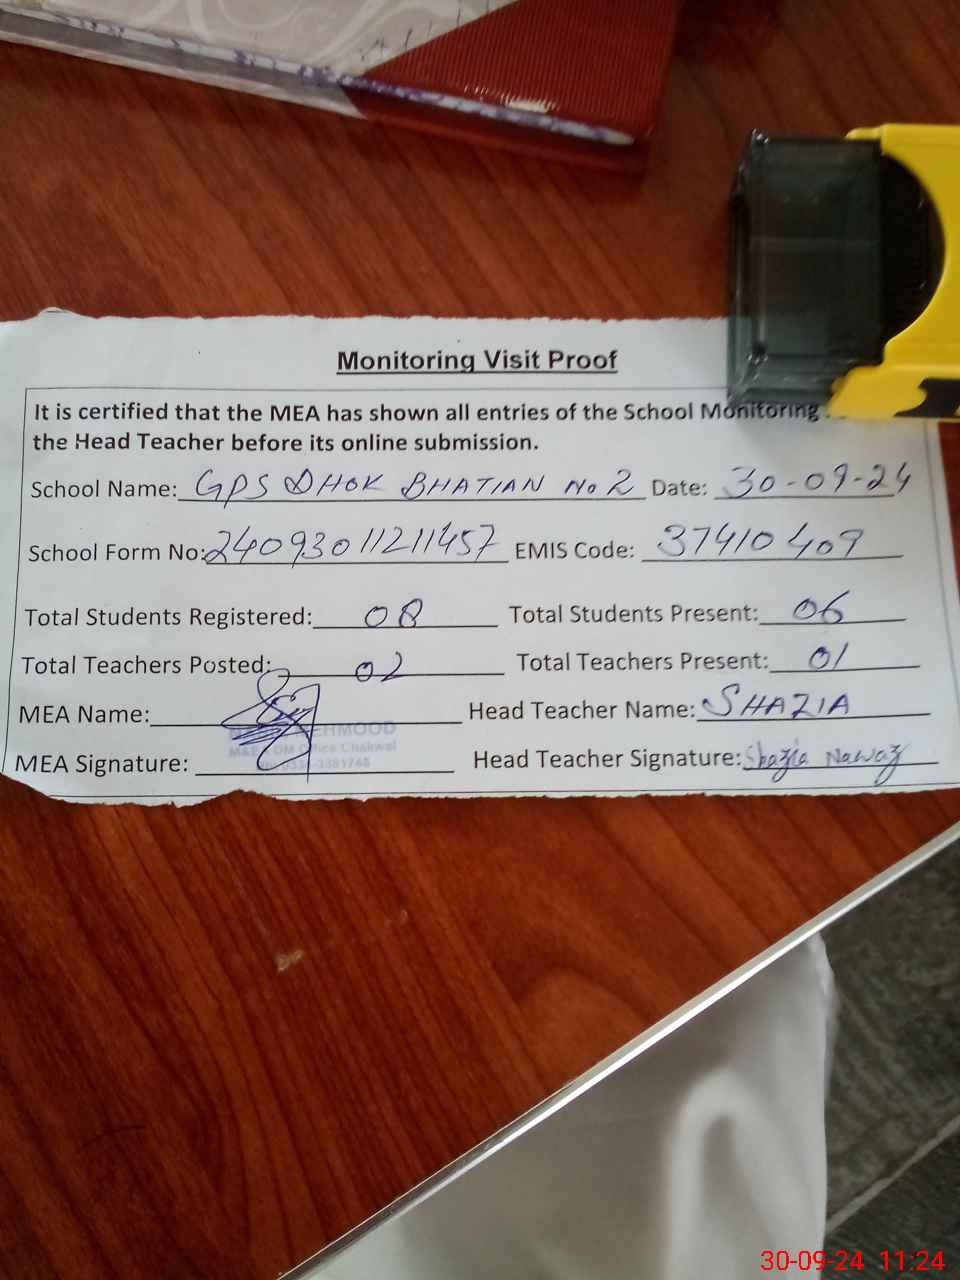 Monitoring Visit Proof
It is certified that the MEA has shown all entries of the School Monitoring
the Head Teacher before its online submission.
School Name: GPS DHOK BHATIAN No 2 Date: 30-09-24
School Form No: 24093011211457 EMIS Code: 37410409
Total Students Registered: 08 Total Students Present: 06
Total Teachers Posted: 02 Total Teachers Present: 01
MEA Name: Head Teacher Name: SHAZIA
MEHMOOD
Office Chakwal
MEA Signature: Head Teacher Signature: Shazia Nawaz
30-09-24 11:24